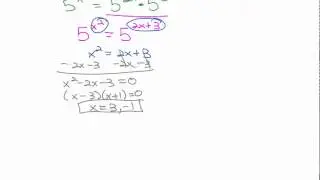 5^x² = 5^2x+3
x² = 2x+3
-2x-3 -2x-3
x²-2x-3=0
(x-3)(x+1)=0
x=3,-1